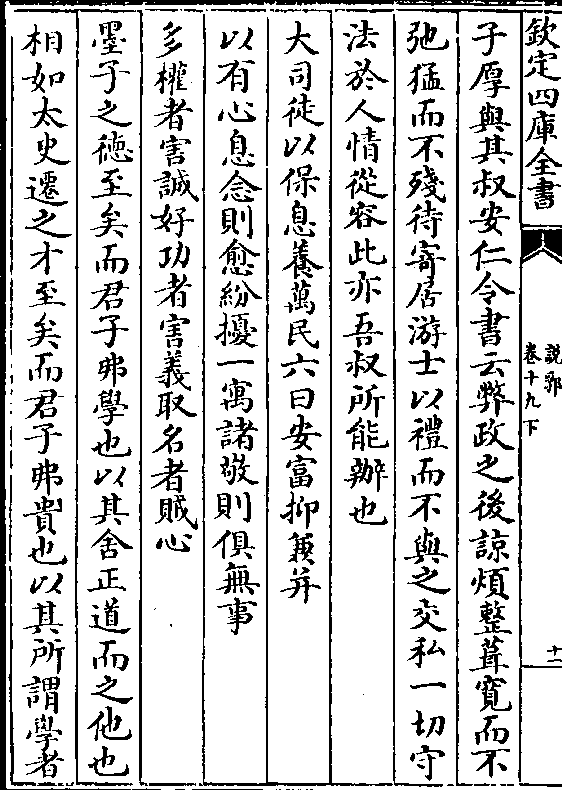 欽定四庫全書
說郛
卷十九下
十二
子厚與其叔安仁令書云弊政之後諒煩整葺寛而不
弛猛而不殘待寄居游士以禮而不與之交私一切守
法於人情從容此亦吾叔所能辦也
大司徒以保息養萬民六曰安富抑兼并
以有心息念則愈紛擾一寓諸敬則俱無事
多權者害誠好功者害義取名者賊心
墨子之德至矣而君子弗學也以其舍正道而之他也
相如太史遷之才至矣而君子弗貴也以其所謂學者